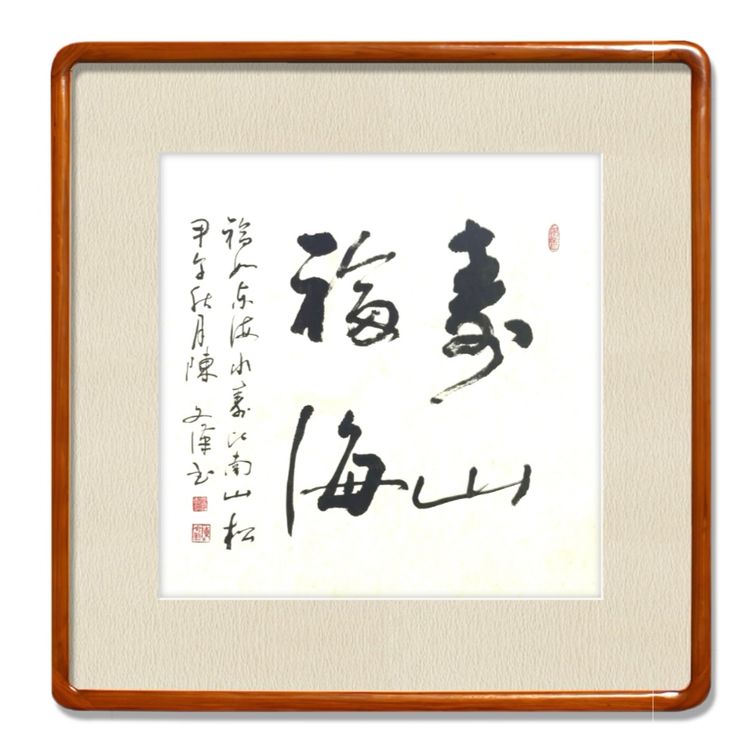 寿山
福海
福如东海水寿比南山松
甲午秋月陳文书